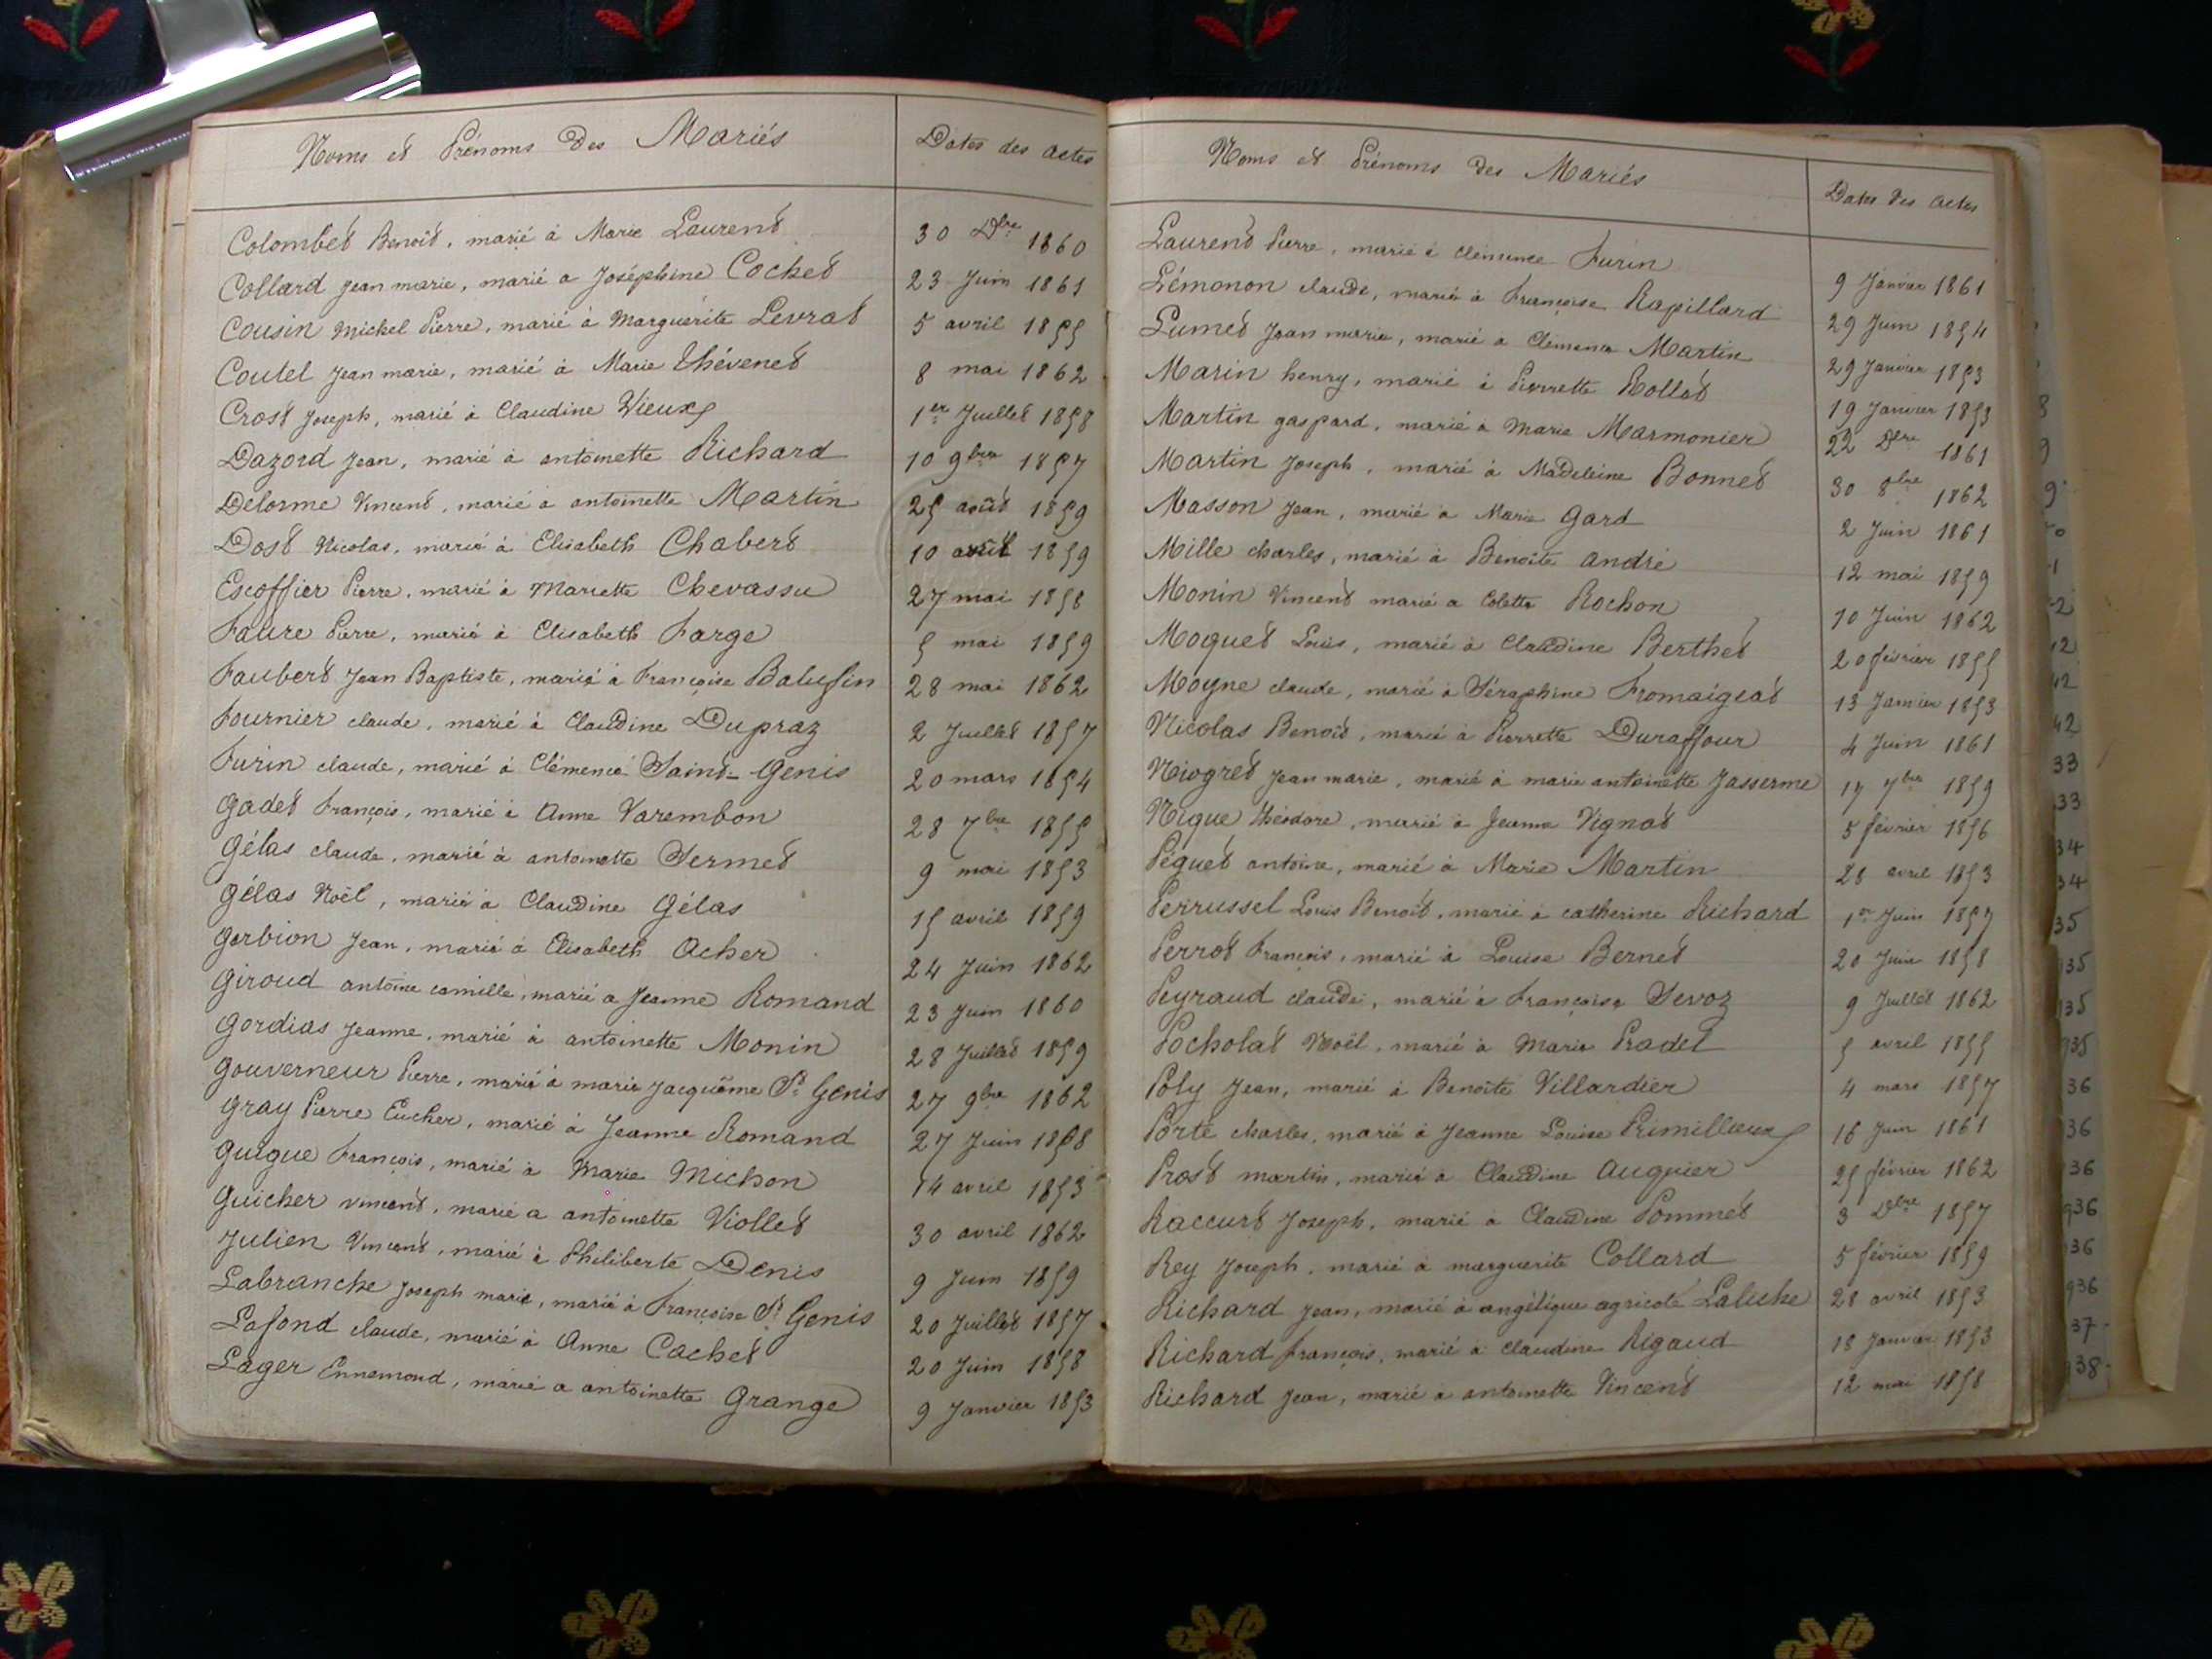 Noms et Prénoms des Mariés | Dates des actes
Colombet Benoît, marié à Marie Laurent | 30 Dbre 1860
Collard Jean marie, marié a Joséphine Cochet | 23 Juin 1861
Cousin Michel Pierre, marié à Marguérite Levrat | 5 avril 1855
Coutel Jean marie, marié à Marie Thévenet | 8 mai 1862
Crost Joseph, marié à Claudine Vieux | 1er Juillet 1858
Dazord Jean, marié à antoinette Richard | 10 9bre 1857
Delorme Vincent, marié à antoinette Martin | 25 août 1859
Dost Nicolas, marié à Elisabeth Chabert | 10 avril 1859
Escoffier Pierre, marié à Mariette Chevassu | 27 mai 1858
Faure Pierre, marié à Elisabeth Farge | 5 mai 1859
Faubert Jean Baptiste, marié à Françoise Balufin | 28 mai 1862
Fournier claude, marié à Claudine Dupraz | 2 Juillet 1857
Furin claude, marié à Clémence Saint-Genis | 20 mars 1854
Gadet François, marié à Anne Varembon | 28 7bre 1855
Gélas claude, marié à antoinette Sermet | 9 mai 1853
Gélas Noël, marié à Claudine Gélas | 15 avril 1859
Gerbion Jean, marié à Elisabeth Acher | 24 Juin 1862
Giroud antoine camille, marié a Jeanne Romand | 23 Juin 1860
Gordias Jeanne, marié à antoinette Monin | 28 Juillet 1859
Gouverneur Pierre, marié à marie Jacquême St Genis | 27 9bre 1862
Gray Pierre Eucher, marié à Jeanne Romand | 27 Juin 1858
Guigue François, marié à Marie Michon | 14 avril 1853
Guicher vincent, marié a antoinette Viollet | 30 avril 1862
Julien Vincent, marié à Philiberte Denis | 9 Juin 1859
Labranche Joseph marie, marié à Françoise St Genis | 20 Juillet 1857
Lafond claude, marié à Anne Cachet | 20 Juin 1858
Lager Ennemond, marié a antoinette Grange | 9 Janvier 1853
Noms et Prénoms des Mariés | Dates des actes
Laurent Pierre, marié à Clémence Furin | 9 Janvier 1861
Lémonon claude, marié à Françoise Rapillard | 29 Juin 1854
Lumet Jean marie, marié a Clémence Martin | 29 Janvier 1853
Marin henry, marié à Pierrette Rollet | 19 Janvier 1853
Martin gaspard, marié à Marie Marmonier | 22 Dbre 1861
Martin Joseph, marié à Madeleine Bonnet | 30 8bre 1862
Masson Jean, marié à Marie Gard | 2 Juin 1861
Mille charles, marié à Benoîte andré | 12 mai 1859
Monin Vincent marié a Colette Rochon | 10 Juin 1862
Moquet Louis, marié à Claudine Berthet | 20 février 1855
Moyne claude, marié à Séraphine Fromaigeat | 13 Janvier 1853
Nicolas Benoît, marié à Pierrette Duraffour | 4 Juin 1861
Niogret Jean marie, marié à marie antoinette Jasserme | 17 7bre 1859
Nique Théodore, marié à Jeanne Vignat | 5 février 1856
Péguet antoine, marié à Marie Martin | 28 avril 1853
Perrussel Louis Benoît, marié à catherine Richard | 1er Juin 1857
Perrot François, marié à Louise Bernet | 20 Juin 1858
Peyraud claude, marié à Françoise Sevoz | 9 Juillet 1862
Pocholat Noël, marié à Marie Pradel | 5 avril 1855
Poly Jean, marié à Benoîte Villardier | 4 mars 1857
Porte charles, marié à Jeanne Louise Rimillieux | 16 Juin 1861
Prost martin, marié a Claudine Auguier | 25 février 1862
Raccurt Joseph, marié à Claudine Pommet | 3 Dbre 1857
Rey Joseph, marié à marguerite Collard | 5 février 1859
Richard Jean, marié à angélique agricole Laluche | 28 avril 1853
Richard François, marié à claudine Rigaud | 18 Janvier 1853
Richard Jean, marié à antoinette Vincent | 12 mai 1858